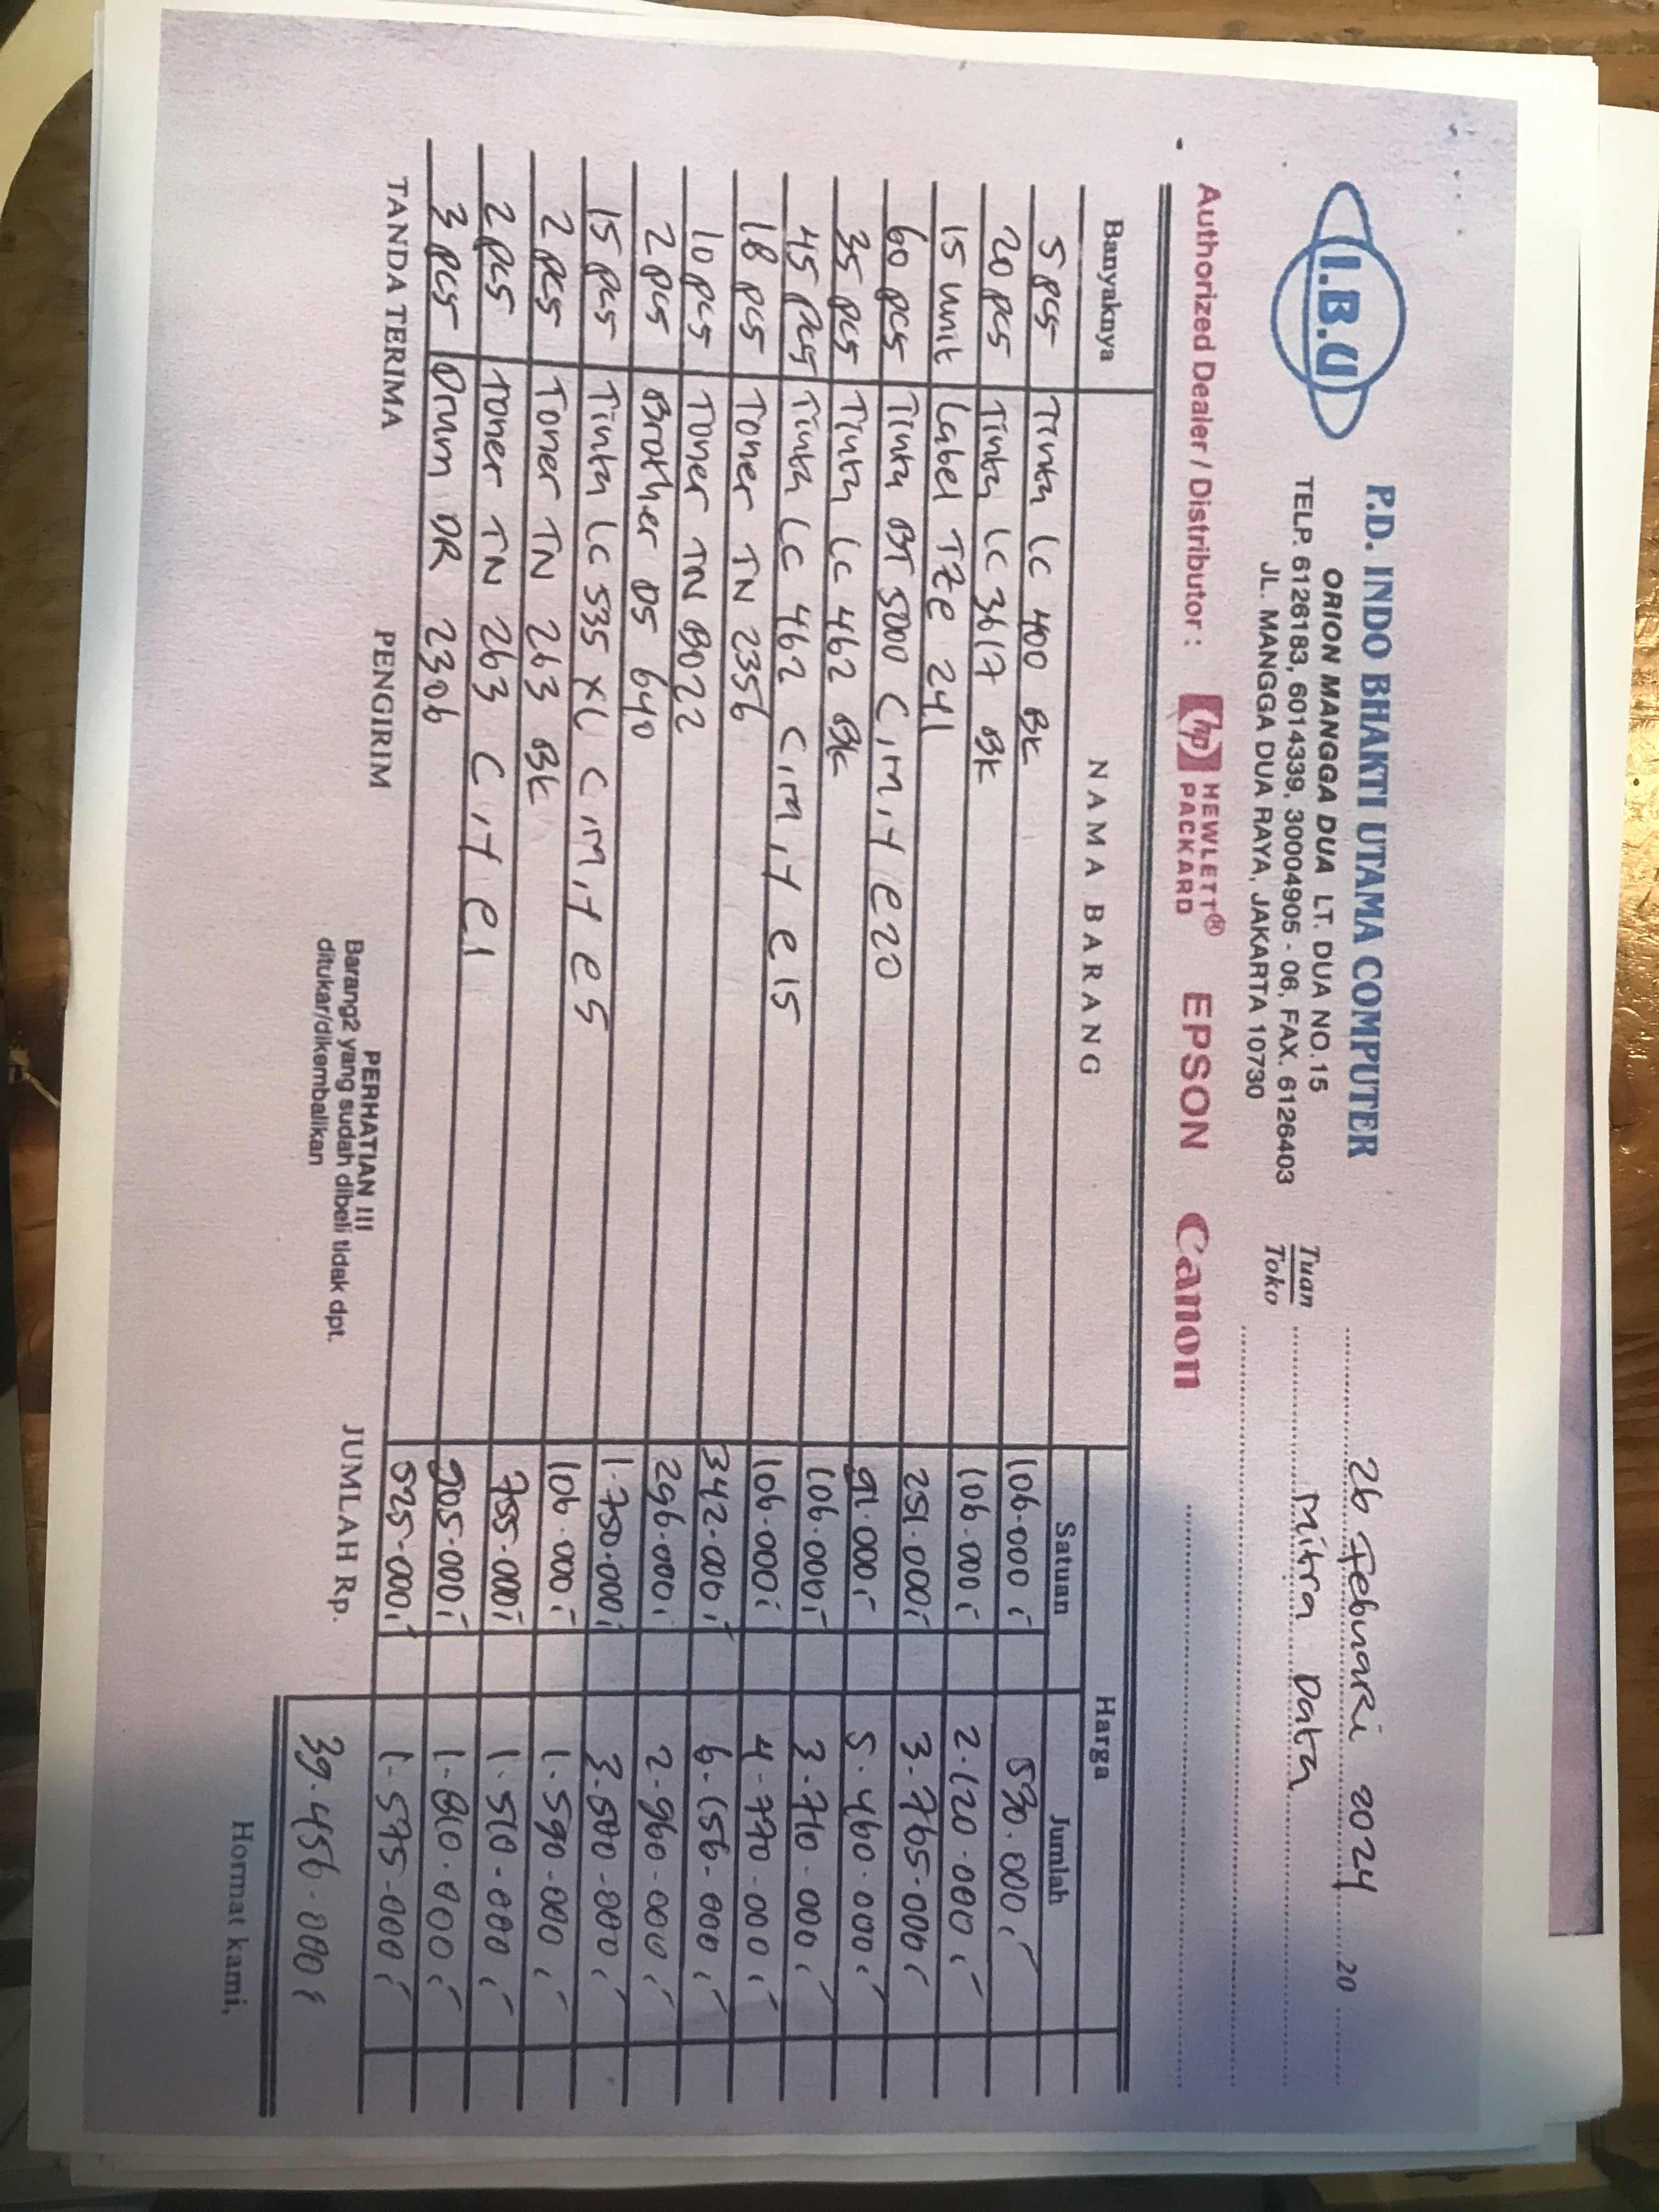 I.B.U
P.D. INDO BHAKTI UTAMA COMPUTER
ORION MANGGA DUA LT. DUA NO.15
TELP. 6126183, 6014339, 30004905 - 06, FAX. 6126403
JL. MANGGA DUA RAYA, JAKARTA 10730
26 Februari 2024 20
Tuan Mitra Data
Toko
Authorized Dealer / Distributor : hp HEWLETT® PACKARD EPSON Canon
Banyaknya NAMA BARANG Harga
Satuan Jumlah
5 pcs Tinta LC 400 BK 106.000,- 530.000,-
20 pcs Tinta LC 3617 BK 106.000,- 2.120.000,-
15 unit Label TZe 241 251.000,- 3.765.000,-
60 pcs Tinta BT 5000 C,M,Y @20 91.000,- 5.460.000,-
35 pcs Tinta LC 462 BK 106.000,- 3.710.000,-
45 pcs Tinta LC 462 C,M,Y @15 106.000,- 4.770.000,-
18 pcs Toner TN 2356 342.000,- 6.156.000,-
10 pcs Toner TN B022 296.000,- 2.960.000,-
2 pcs Brother DS 640 1.750.000,- 3.500.000,-
15 pcs Tinta LC 535 XL C,M,Y @5 106.000,- 1.590.000,-
2 pcs Toner TN 263 BK 755.000,- 1.510.000,-
2 pcs Toner TN 263 C,Y @1 905.000,- 1.810.000,-
3 pcs Drum DR 2306 525.000,- 1.575.000,-
TANDA TERIMA PENGIRIM JUMLAH Rp. 39.456.000,-
PERHATIAN !!!
Barang2 yang sudah dibeli tidak dpt.
ditukar/dikembalikan
Hormat kami,